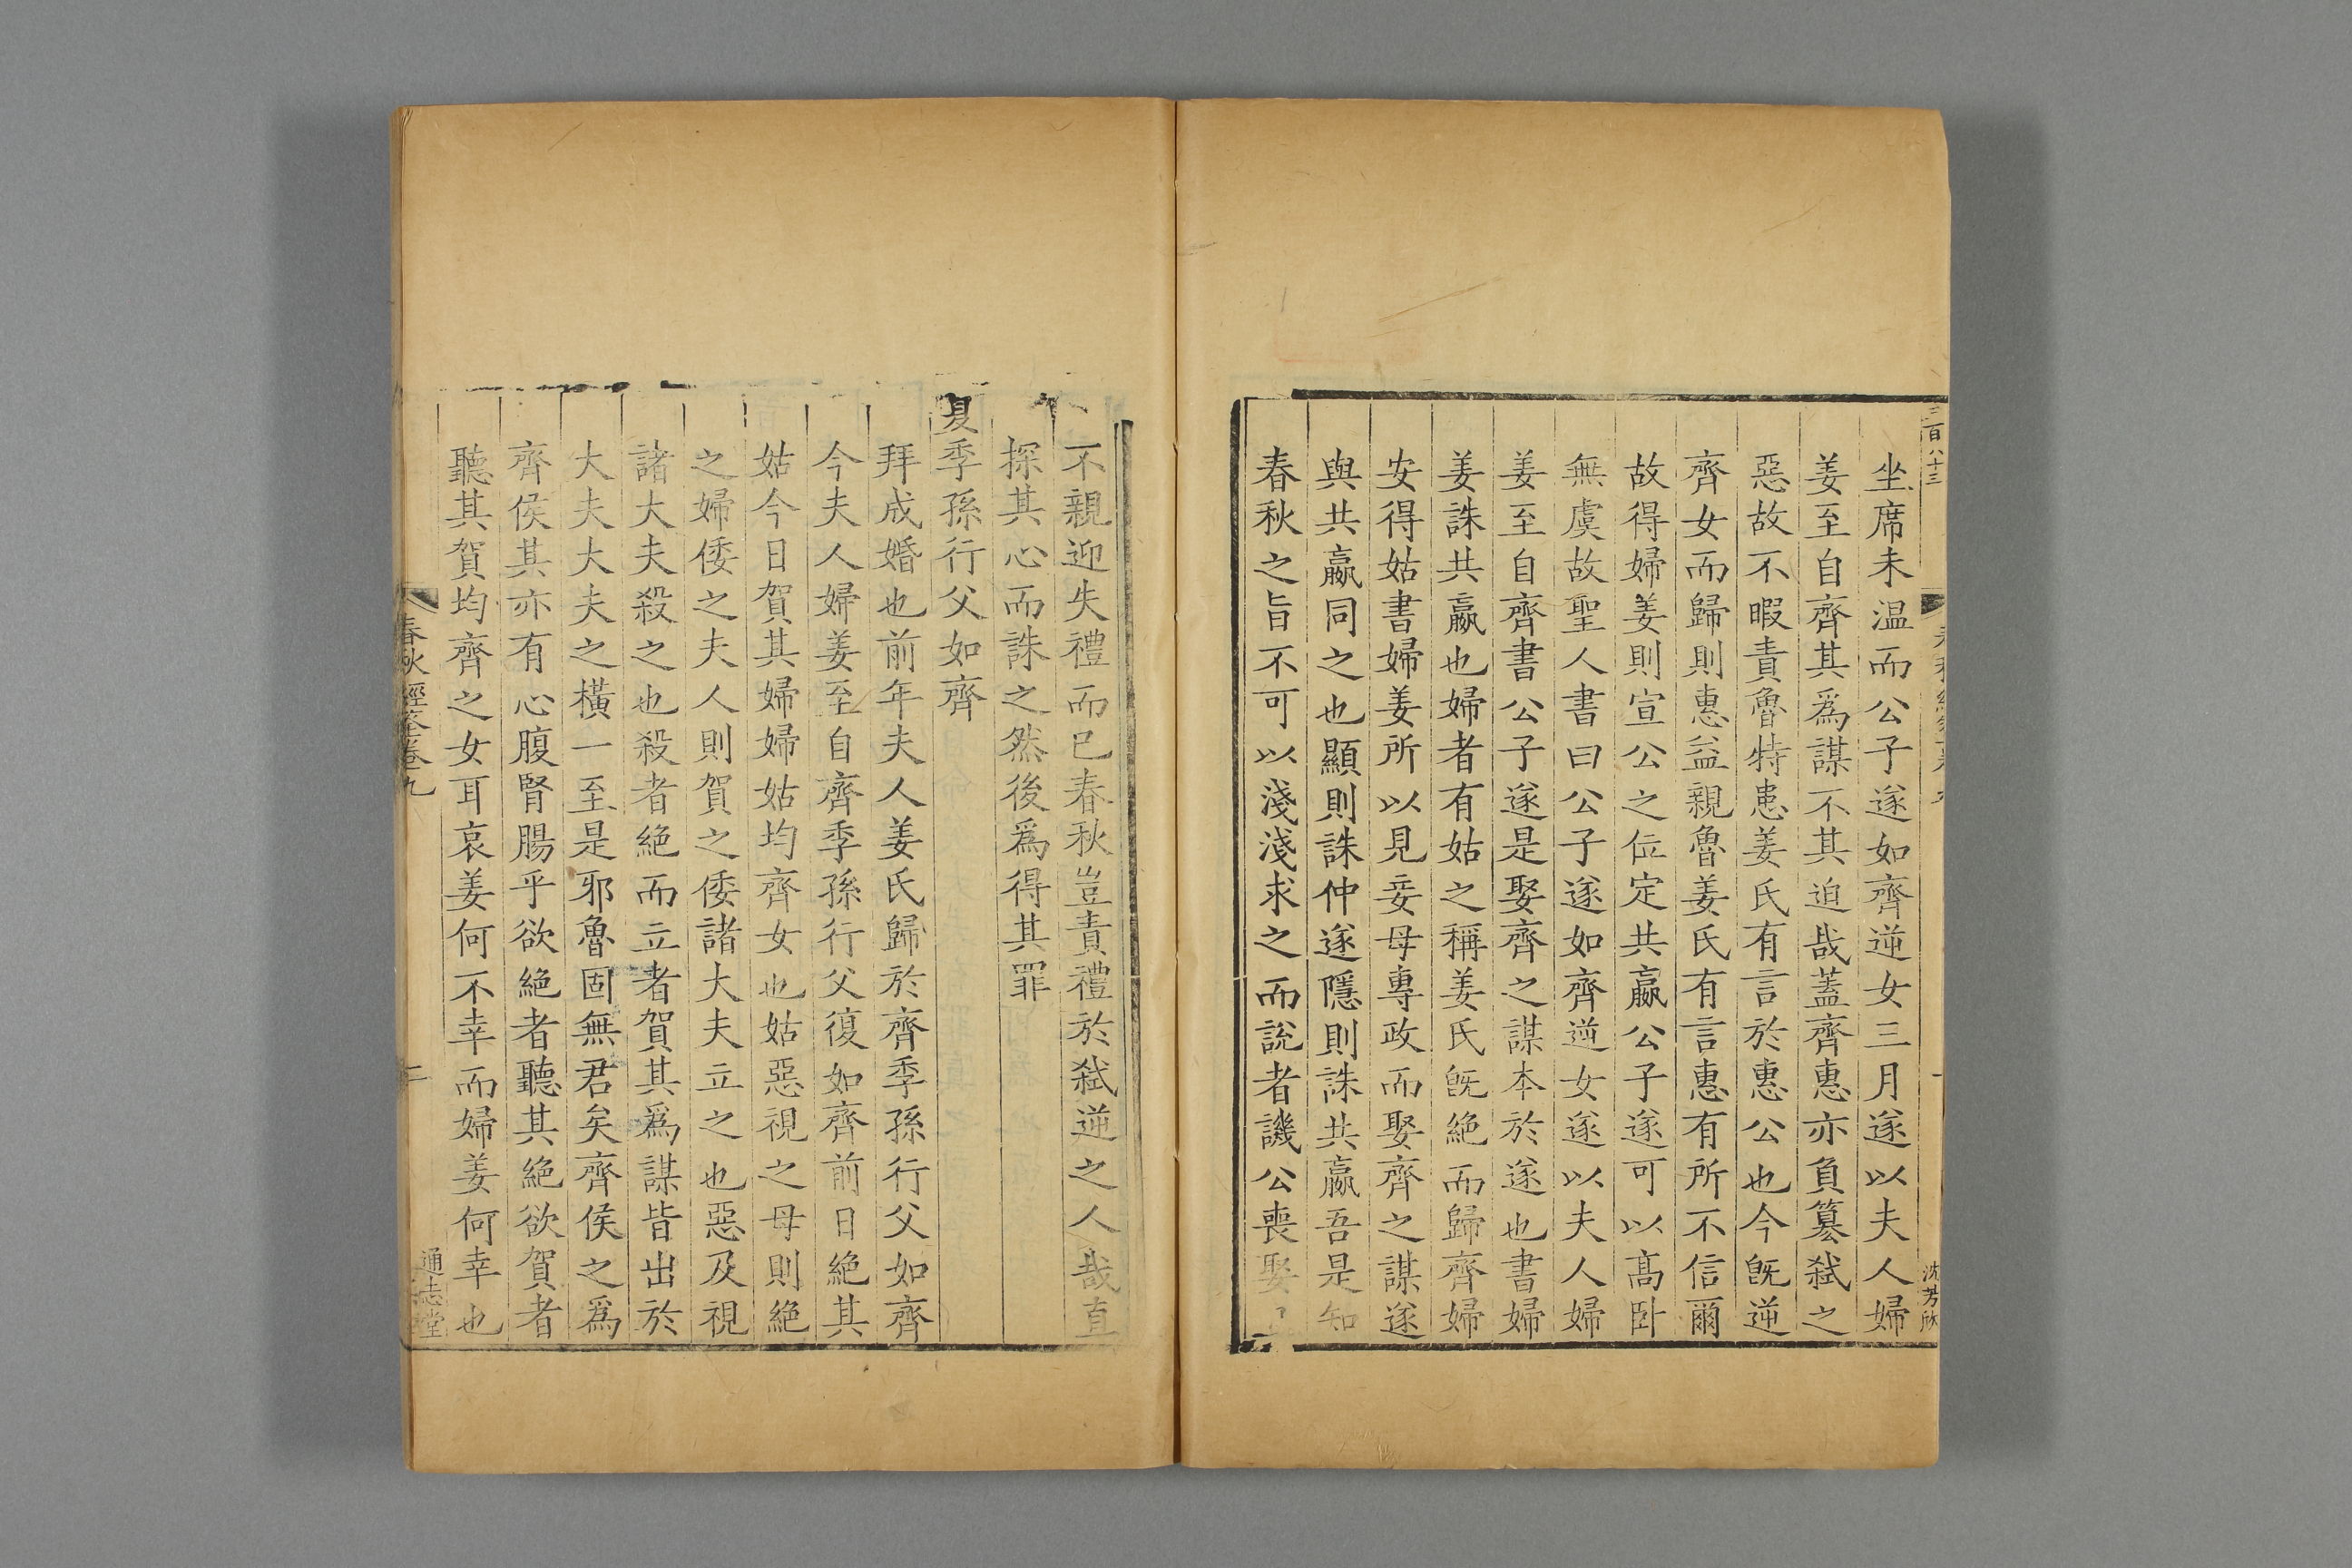 三百八十三
沈芳欣
坐席未温而公子遂如齊逆女三月遂以夫人婦
姜至自齊其爲謀不其迫哉蓋齊惠亦負簒弑之
惡故不暇責魯特患姜氏有言於惠公也今旣逆
齊女而歸則惠益親魯姜氏有言惠有所不信爾
故得婦姜則宣公之位定共嬴公子遂可以高卧
無虞故聖人書曰公子遂如齊逆女遂以夫人婦
姜至自齊書公子遂是娶齊之謀本於遂也書婦
姜誅共嬴也婦者有姑之稱姜氏旣絶而歸齊婦
安得姑書婦姜所以見妾母專政而娶齊之謀遂
與共嬴同之也顯則誅仲遂隱則誅共嬴吾是知
春秋之旨不可以淺淺求之而說者譏公喪娶
不親迎失禮而已春秋豈責禮於弑逆之人哉直
探其心而誅之然後爲得其罪
夏季孫行父如齊
拜成婚也前年夫人姜氏歸於齊季孫行父如齊
今夫人婦姜至自齊季孫行父復如齊前日絶其
姑今日賀其婦婦姑均齊女也姑惡視之母則絶
之婦倭之夫人則賀之倭諸大夫立之也惡及視
諸大夫殺之也殺者絶而立者賀其爲謀皆出於
大夫大夫之橫一至是邪魯固無君矣齊侯之爲
齊侯其亦有心腹腎腸乎欲絶者聽其絶欲賀者
聽其賀均齊之女耳哀姜何不幸而婦姜何幸也
春秋經筌卷九
二
通志堂